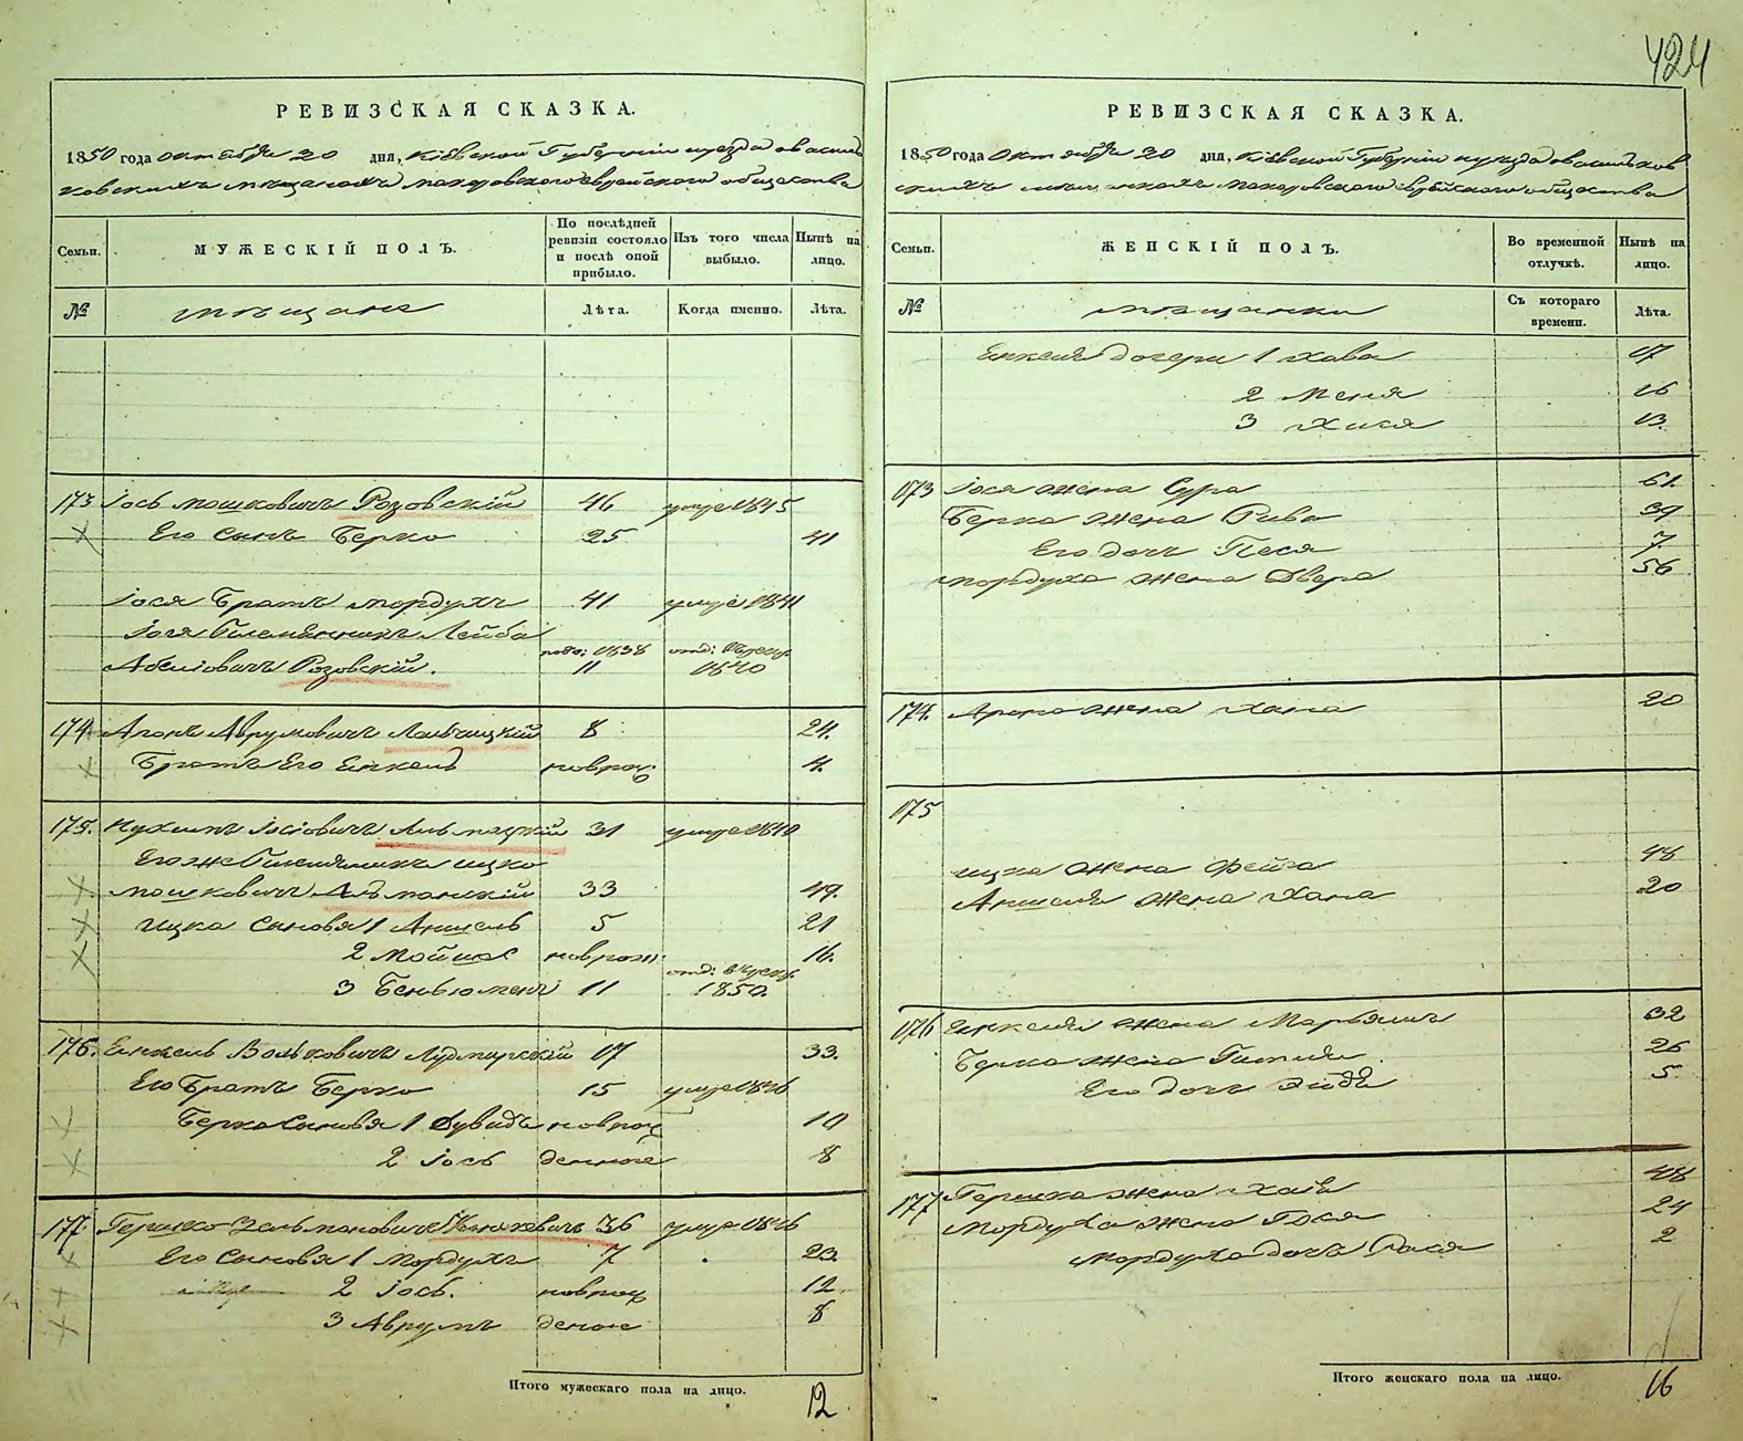 424
РЕВИЗСКАЯ СКАЗКА.
1850 года октября 20 дня, Кіевской Губерніи уезда о василь
ковскихъ мещанахъ макаровского еврейского общества
Семьи.
МУЖЕСКІЙ ПОЛЪ.
По послѣдней ревизіи состояло и послѣ оной прибыло.
Изъ того числа выбыло.
Нынѣ на лицо.
№
мещане
Лѣта.
Когда именно.
Лѣта.
173 Іось Мошковичъ Розовскій 46 умре 1845
Его сынъ Берко 25 41
Іося Братъ Мордухъ 41 умре 1841
Іося Племянникъ Лейба
по 1838 отд:
Абелiовичъ Розовскій. 11 1840
174 Аронъ Аврумовичъ 8 24.
Братъ Его Енкель новрож: 4.
175. Нухимъ Іосіовичъ 31 умре
Его же Племянникъ Ицко
Мошковичъ 33 49.
Ицка сыновя 1 Аншель 5 21
2 Мойше новрож: 16.
отд:
3 Беньюмень 11 1850.
176. Енкель Вольковичъ 17 33.
Его Братъ Берко 15 умре 1846
Берка сыновя 1 Дувидъ новрож 10
2 Іось денные 8
177 Гершко Зельмановичъ 36 умре 1846
Его сыновя 1 Мордухъ 7 23.
2 Іось. новрож 12
3 Аврумъ денные 8
Итого мужескаго пола на лицо.
12
РЕВИЗСКАЯ СКАЗКА.
1850 года Октября 20 дня, Кіевской Губерніи уезда о васильков
скихъ мещанкахъ макаровского еврейского общества
Семьи.
ЖЕНСКІЙ ПОЛЪ.
Во временной отлучкѣ.
Нынѣ на лицо.
№
мещанки
Съ котораго времени.
Лѣта.
Енкеля дочери 1 Хава 17
2 Меня 16
3 Хися 13.
173 Іося жена Сура 61.
Берка жена Рива 39
Его дочь Песя 7.
Мордуха жена Двера 56
174. Арона жена Хана 20
175
Ицка жена Фейга 48
Аншеля жена Хана 20
176 Енкеля жена Марьямъ 32
Берка жена Гитля 26
Его дочь 5
177 Гершка жена Хая 48
Мордуха жена Гося 24
Мордуха дочь Рася 2
Итого женскаго пола на лицо.
16